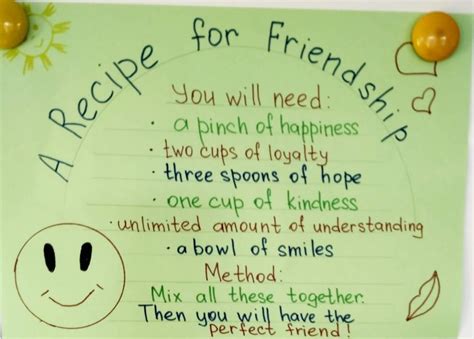 A Recipe for Friendship
You will need:
· a pinch of happiness
· two cups of loyalty
· three spoons of hope
· one cup of kindness
· unlimited amount of understanding
· a bowl of smiles
Method:
Mix all these together.
Then you will have the
perfect friend!